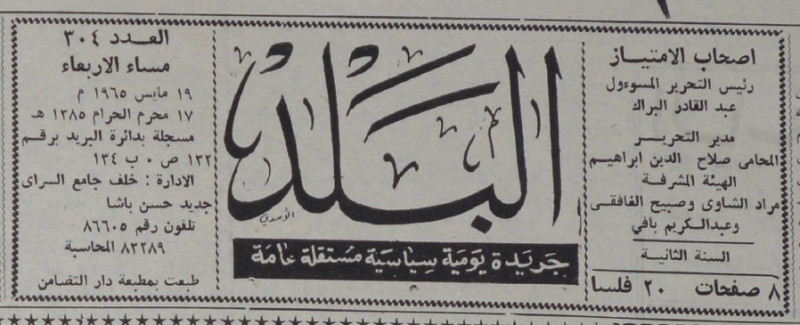 اصحاب الامتياز
رئيس التحرير المسوءول
عبد القادر البراك
مدير التحرير
المحامى صلاح الدين ابراهيم
الهيئة المشرفة
مراد الشاوى وصبيح الغافقى
وعبدالكريم بافي
السنة الثانية
٨ صفحات ٢٠ فلسا
البلد
الأسدي
جريدة يومية سياسية مستقلة عامة
العدد ٣٠٤
مساء الاربعاء
١٩ مايس ١٩٦٥ م
١٧ محرم الحرام ١٣٨٥ هـ
مسجلة بدائرة البريد برقم
١٢٢ ص ٠ ب ١٣٤
الادارة : خلف جامع السراى
جديد حسن باشا
تلفون رقم ٨٦٦٠٥
٨٣٢٨٩ المحاسبة
طبعت بمطبعة دار التضامن